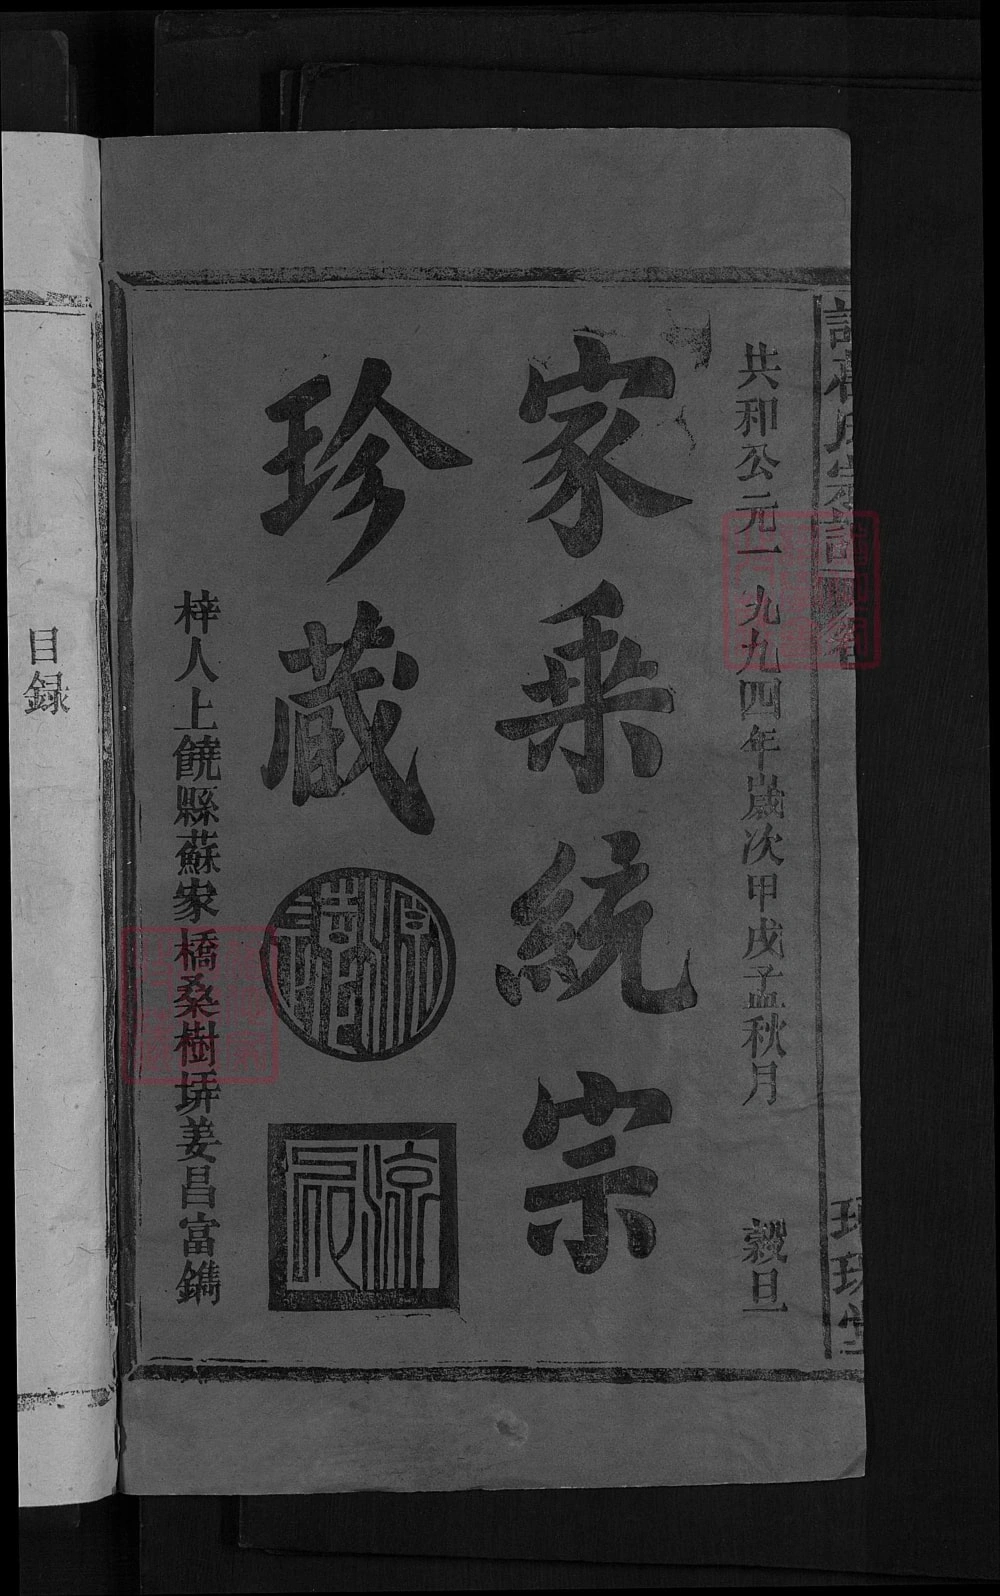 諸葛氏宗譜
共和公元一九九四年歲次甲戌孟秋月　穀旦
家乘統宗
珍藏
梓人上饒縣蘇家橋桑樹㙃姜昌富鐫
目録